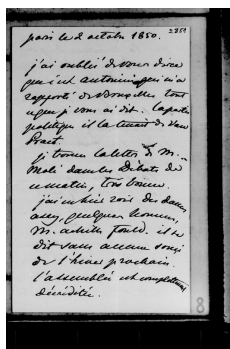 paris le 2 octobre 1850.
2851
j'ai oublié de vous dire
que c'est antonini qui m'a
rapporté de Versailles tout
ce que je vous ai dit. la partie
politique il la tenait de
je trouve la lettre de M.
Molé dans les Débats de
ce matin, très bonne.
j'ai vu hier soir des dames
assez, quelques hommes,
M. achille fould. il se
dit sans aucun souci
de l'hiver prochain.
l'assemblée est complètement
décidée.
8